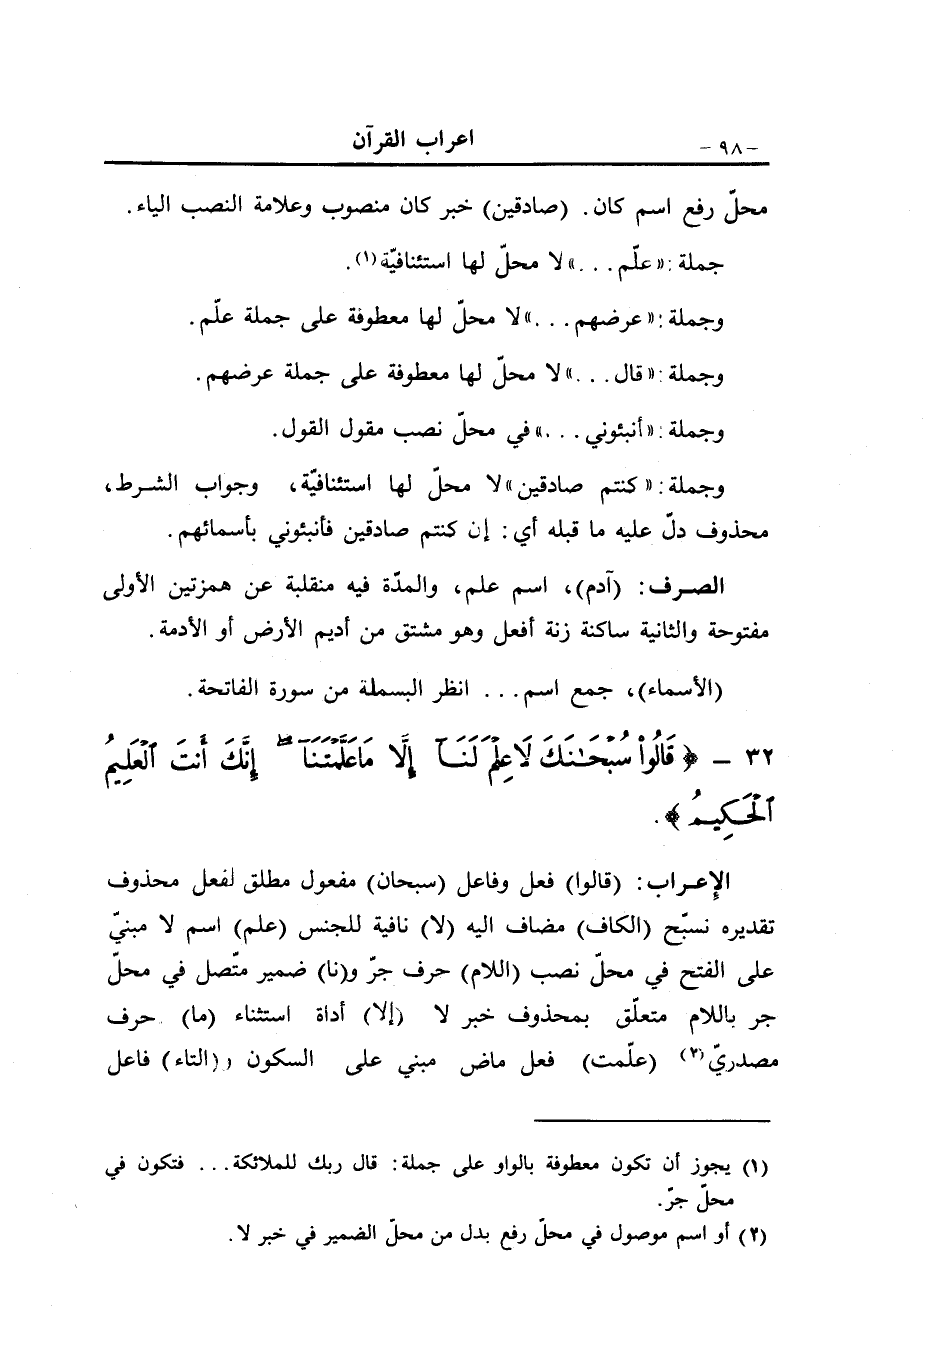 - ٩٨ -
اعراب القرآن
محلّ رفع اسم كان. (صادقين) خبر كان منصوب وعلامة النصب الياء.
جملة: «علّم...» لا محلّ لها استئنافيّة(١).
وجملة: «عرضهم...» لا محلّ لها معطوفة على جملة علّم.
وجملة: «قال...» لا محلّ لها معطوفة على جملة عرضهم.
وجملة: «أنبئوني...» في محلّ نصب مقول القول.
وجملة: «كنتم صادقين» لا محلّ لها استئنافيّة، وجواب الشرط،
محذوف دلّ عليه ما قبله أي: إن كنتم صادقين فأنبئوني بأسمائهم.
الصرف: (آدم)، اسم علم، والمدّة فيه منقلبة عن همزتين الأولى
مفتوحة والثانية ساكنة زنة أفعل وهو مشتق من أديم الأرض أو الأدمة.
(الأسماء)، جمع اسم... انظر البسملة من سورة الفاتحة.
٣٢ - ﴿قَالُواْ سُبْحَـٰنَكَ لَا عِلْمَ لَنَآ إِلَّا مَا عَلَّمْتَنَآ ۖ إِنَّكَ أَنتَ ٱلْعَلِيمُ
ٱلْحَكِيمُ﴾.
الإعراب: (قالوا) فعل وفاعل (سبحان) مفعول مطلق لفعل محذوف
تقديره نسبّح (الكاف) مضاف اليه (لا) نافية للجنس (علم) اسم لا مبنيّ
على الفتح في محلّ نصب (اللام) حرف جرّ و(نا) ضمير متّصل في محلّ
جر باللام متعلّق بمحذوف خبر لا (إلا) أداة استثناء (ما) حرف
مصدريّ(٢) (علّمت) فعل ماض مبني على السكون و(التاء) فاعل
(١) يجوز أن تكون معطوفة بالواو على جملة: قال ربك للملائكة... فتكون في
محلّ جرّ.
(٢) أو اسم موصول في محلّ رفع بدل من محلّ الضمير في خبر لا.